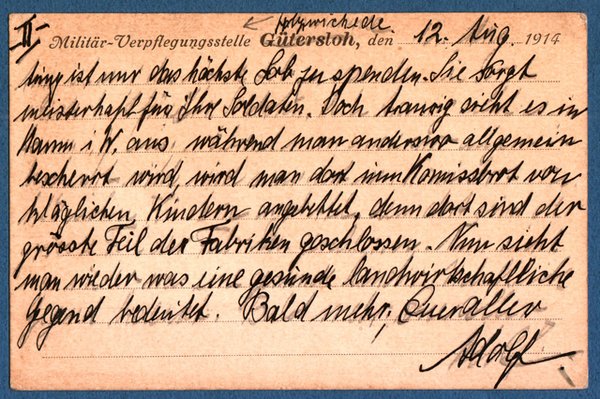 II
Holzwickede
Militär-Verpflegungsstelle Gütersloh, den 12. Aug. 1914
tung ist nur das höchste Lob zu spenden. Sie sorgt
meisterhaft für Ihre Soldaten. Doch traurig sieht es in
Hamm i W. aus, während man anderswo allgemein
bescherrt wird, wird man dort um Komissbrot von
kläglichen Kindern angebettet, denn dort sind der
grösste Teil der Fabriken geschlossen. Nun sieht
man wieder was eine gesunde landwirtschaftliche
Gegend bedeutet. Bald mehr, Euer aller
Adolf